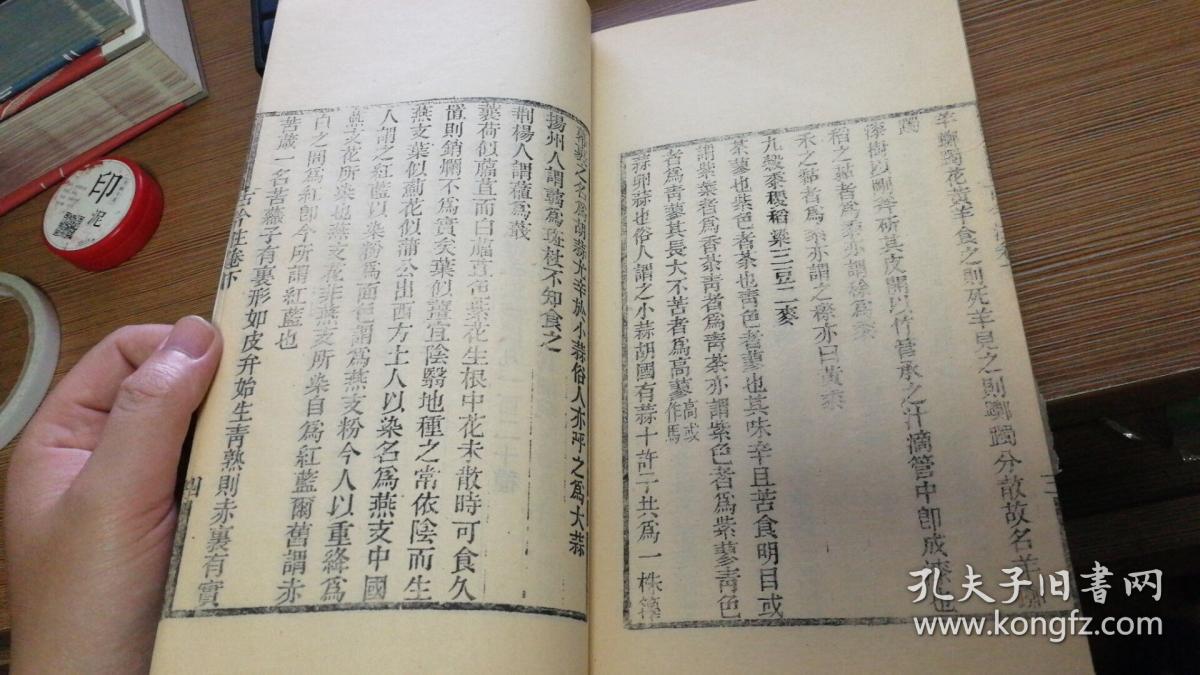 羊躑躅花黃羊食之則死羊見之則躑躅分散故名羊躑
躅
漆樹以剛斧斫其皮開以竹管承之汁滴管中即成漆也
稻之黏者為黍亦謂穄為黍
禾之黏者為黍亦謂之穄亦曰黃黍
九穀黍稷稻粱三豆二麥
荼蓼也紫色者荼也青色者蓼也其味辛且苦食明目或
謂紫葉者為香荼青者為青荼亦謂紫色者為紫蓼青色
者為青蓼其長大不苦者為高蓼高或作馬
蒜卵蒜也俗人謂之小蒜胡國有蒜十許子共為一株籜
幕裹之名為胡蒜尤辛於小蒜俗人亦呼之為大蒜
揚州人謂蒻為斑杖不知食之
荆楊人謂蒩為蕺
蘘荷似䕡苴而白䕡苴色紫花生根中花未散時可食久
置則銷爛不為實矣葉似薑宜陰翳地種之常依陰而生
燕支葉似薊花似蒲公出西方土人以染名為燕支中國
人謂之紅藍以染粉為面色謂為燕支粉今人以重絳為
燕支非燕支花所染也燕支花所染自為紅藍爾舊謂赤
白之間為紅即今所謂紅藍也
苦葴一名苦蘵子有裏形如皮弁始生青熟則赤裏有實
古今注卷下
四
三
印
泥
孔夫子旧书网
www.kongfz.com